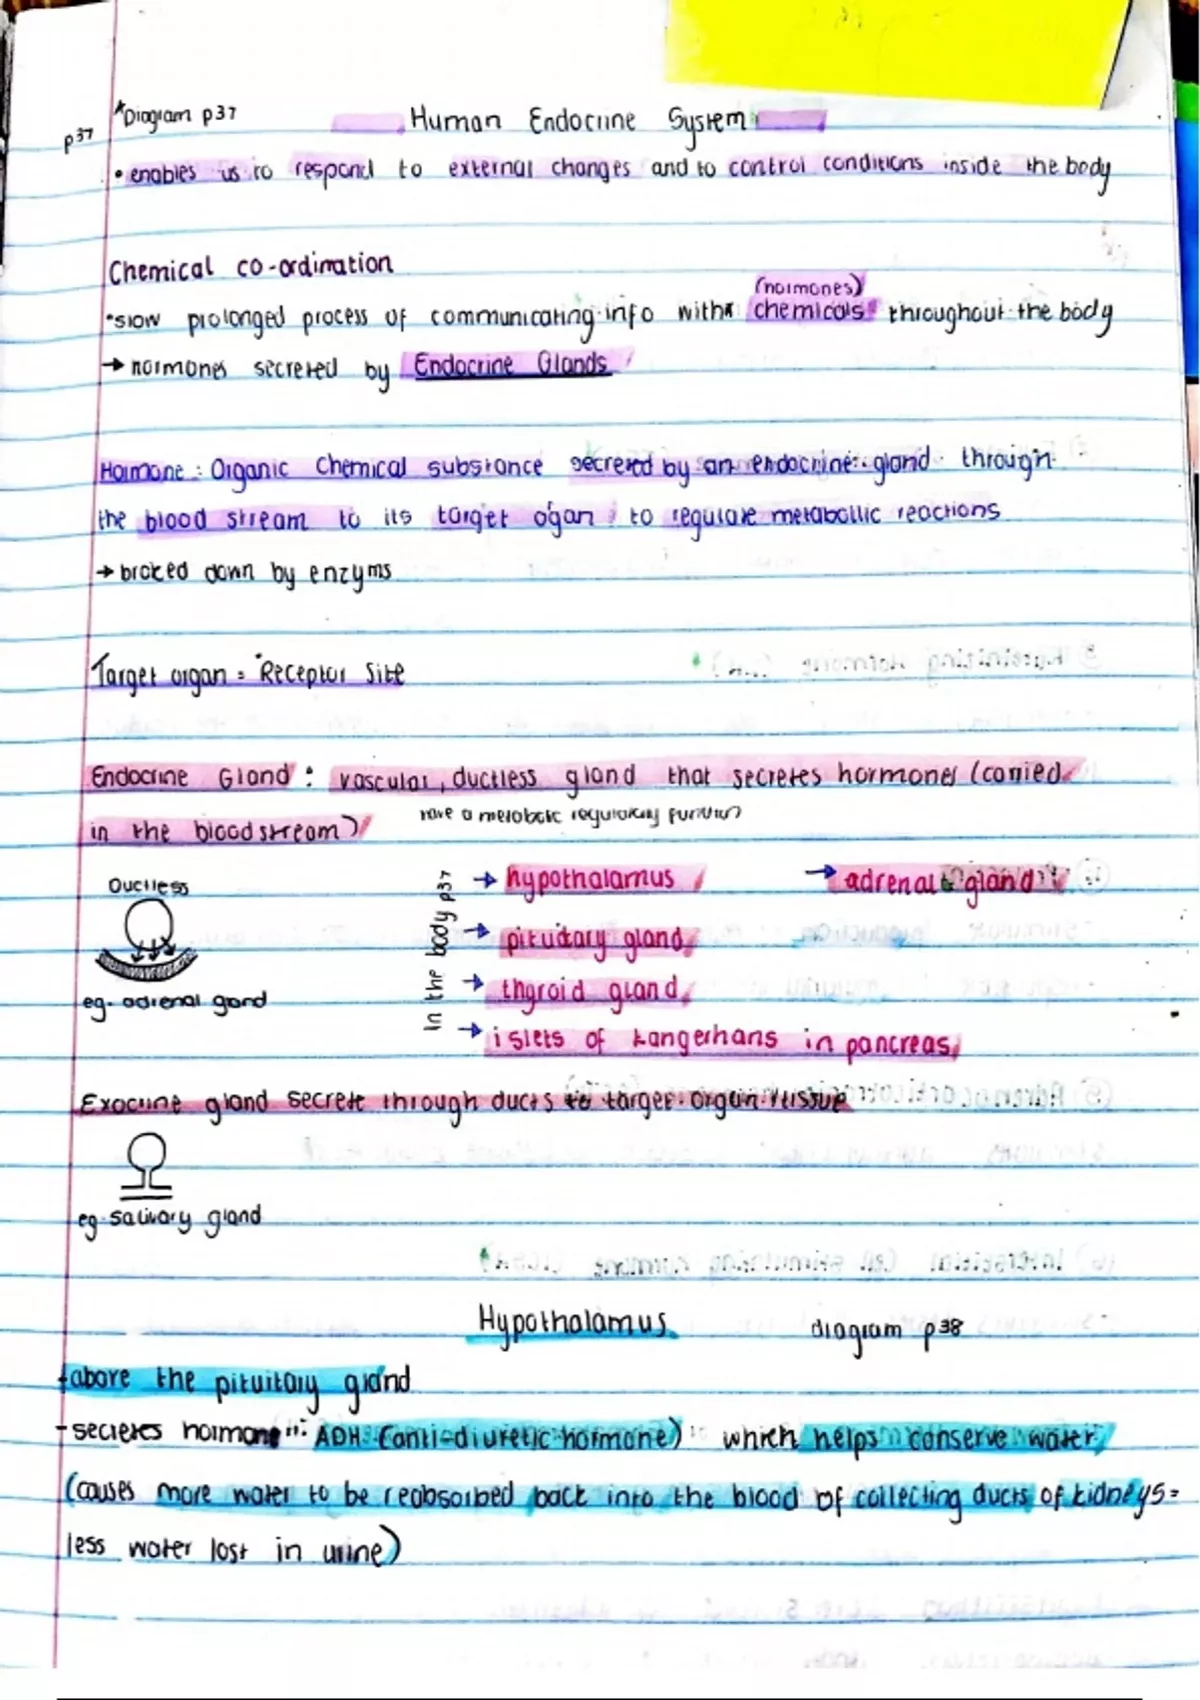 *Diagram p37
p37
Human Endocrine System
• enables us to respond to external changes and to control conditions inside the body
Chemical co-ordination
(hormones)
•slow prolonged process of communicating info with chemicals throughout the body
→ hormones secreted by Endocrine Glands
Hormone: Organic Chemical substance secreted by an endocrine gland through
the blood stream to its target ogan to regulate metabollic reactions
→ broked down by enzyms
Target organ = Receptor Site
Endocrine Gland: vascular, ductless gland that secretes hormones (carried
in the blood stream)
have a metabolic regulatory function
Ductless
eg. adrenal gand
In the body p37
→ hypothalamus
→ adrenal gland
→ pitutary gland
→ thyroid gland
→ islets of Langerhans in pancreas
Exocrine gland secrete through ducts to target organ/tissue
eg. salivary gland
Hypothalamus
diagram p38
-above the pituitary gland
- secretes hormone: ADH (anti-diuretic hormone) which helps conserve water
(causes more water to be reabsorbed back into the blood of collecting ducts of kidneys =
less water lost in urine)